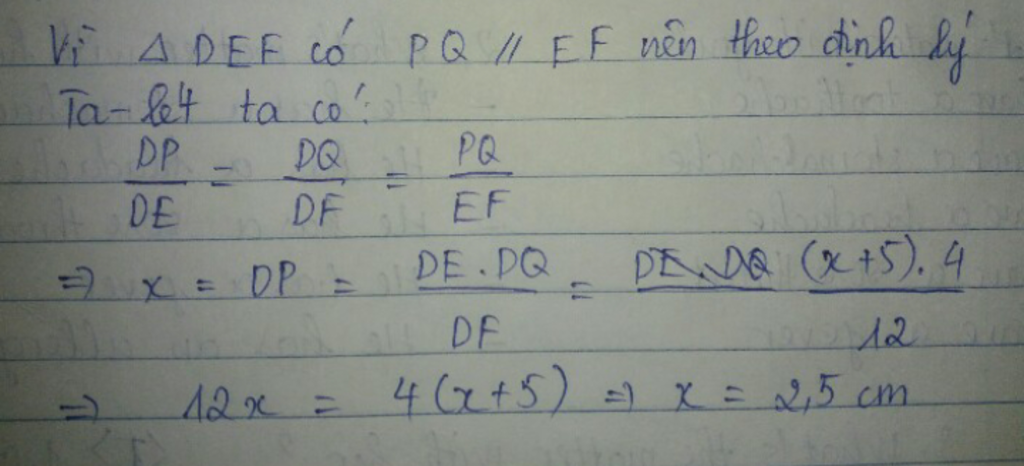 Vì Δ DEF có PQ // EF nên theo định lý
Ta-lét ta có:
DP/DE = DQ/DF = PQ/EF
=> x = DP = DE.DQ/DF = (x+5).4/12
=> 12x = 4(x+5) => x = 2,5 cm